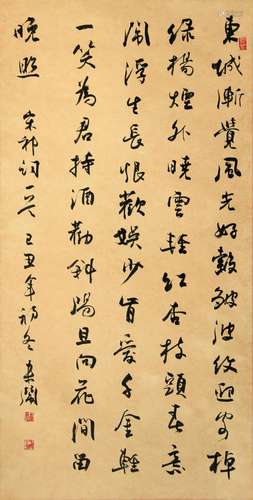 東城漸覺風光好縠皺波紋迎客棹
綠楊煙外曉雲輕紅杏枝頭春意
鬧浮生長恨歡娛少肯愛千金輕
一笑為君持酒勸斜陽且向花間留
晚照 宋祁詞一首 己丑年初冬